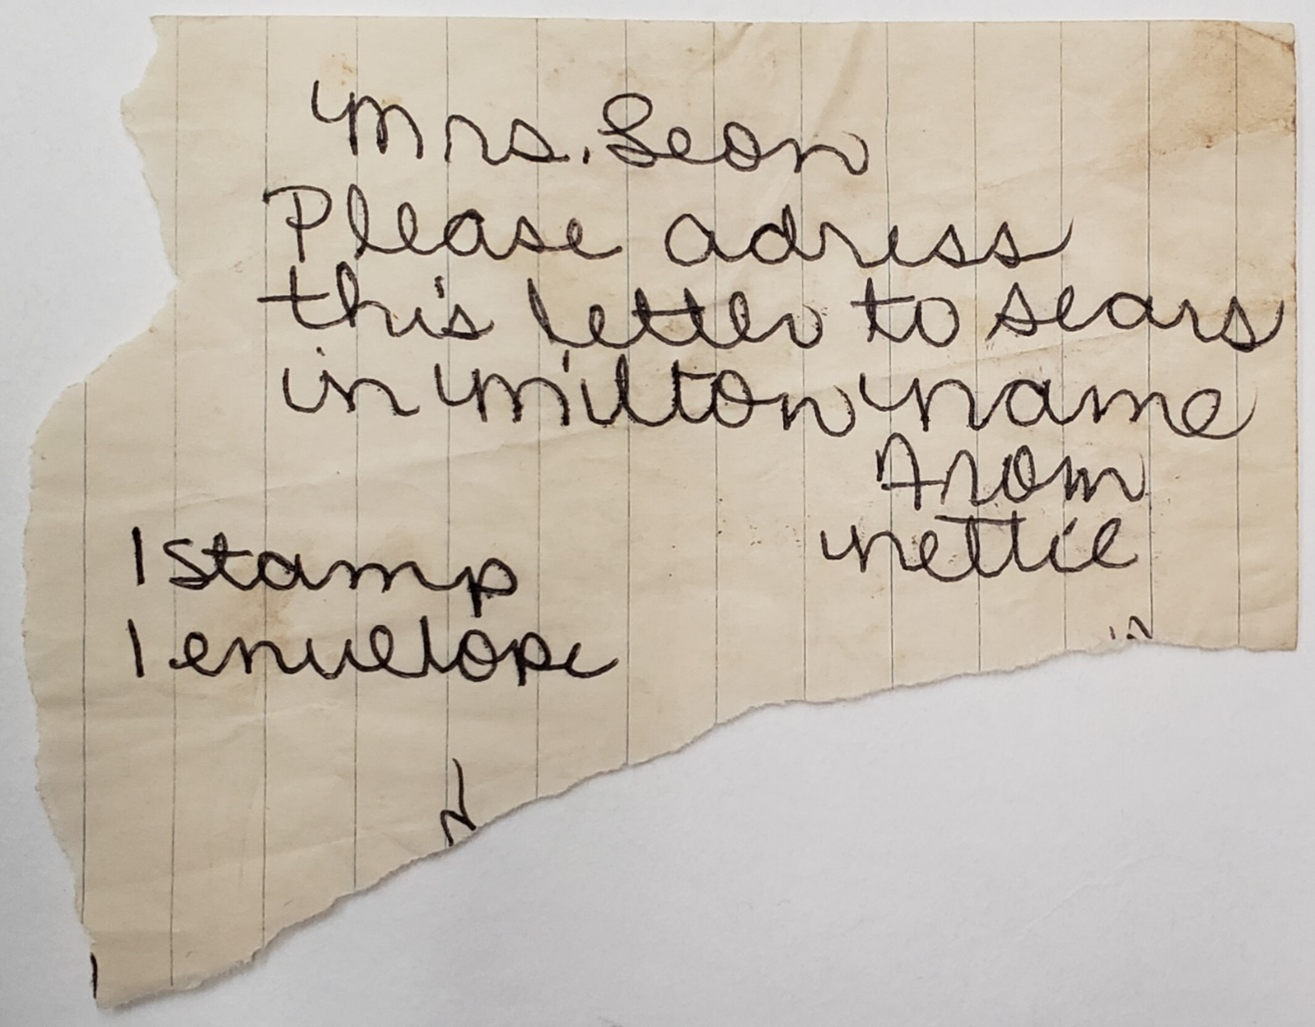 Mrs. Leon
Please adress
this letter to sears
in Milton name
From
nettie
1 stamp
1 envelope